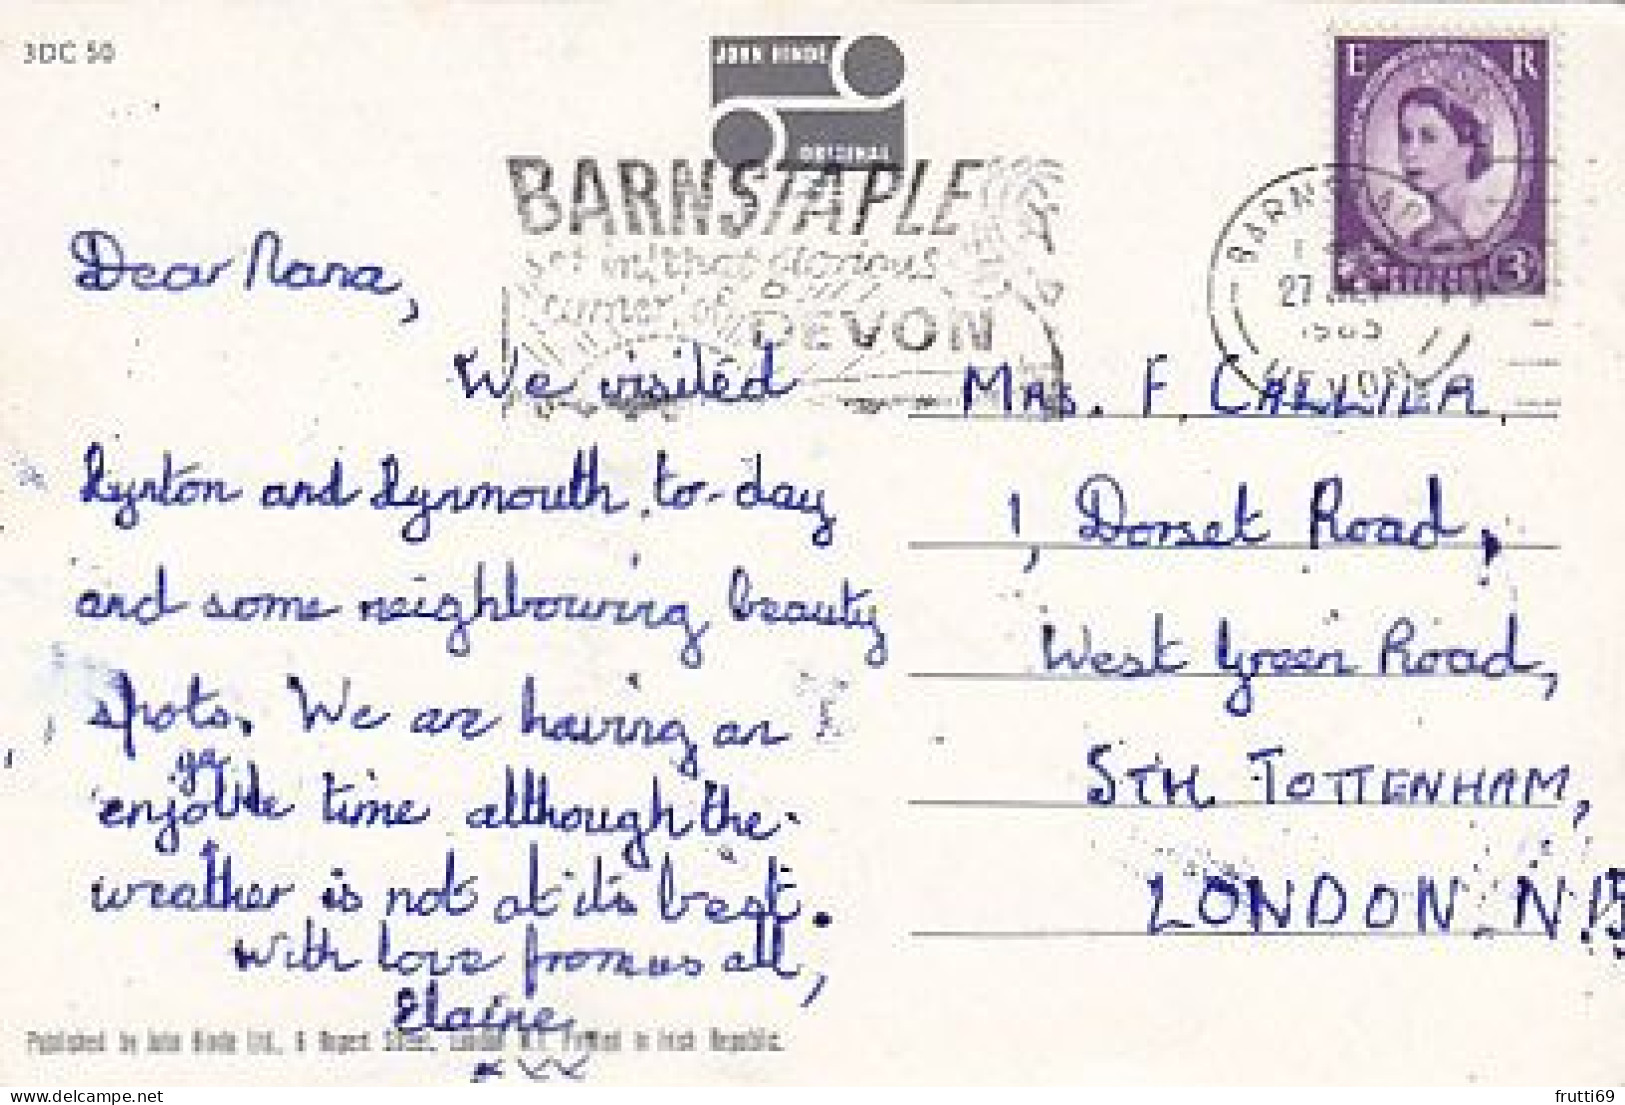 3DC 50
JOHN HINDE
ORIGINAL
BARNSTAPLE
set in that glorious
corner of
DEVON
E R
3D
27
DEVON
Dear Nana,
We visited
Lynton and Lynmouth to-day
and some neighbouring beauty
spots. We are having an
enjoyable time although the
weather is not at its best.
With love from us all,
Elaine
Mrs. F.
1, Dorset Road,
West Green Road,
STH. TOTTENHAM,
LONDON N.15
Published by John Hinde Ltd., Regent Street, London W.1. Printed in Irish Republic.
frutti69